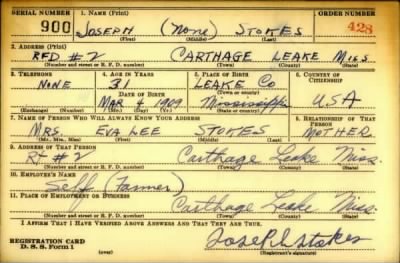 SERIAL NUMBER 1. Name (Print) ORDER NUMBER
900 JOSEPH (None) STOKES 428
(First) (Middle) (Last)
2. Address (Print)
RFD #2 CARTHAGE LEAKE Miss
(Number and street or R. F. D. number) (Town) (County) (State)
3. Telephone 4. Age in Years 5. Place of Birth 6. Country of Citizenship
NONE 31 LEAKE Co
Date of Birth (Town or county)
MAR 4 1909 Mississippi USA
(Exchange) (Number) (Mo.) (Day) (Yr.) (State or country)
7. Name of Person Who Will Always Know Your Address 8. Relationship of That Person
MRS. EVA LEE STOKES MOTHER
(Mr., Mrs., Miss) (First) (Middle) (Last)
9. Address of That Person
Rt #2 Carthage Leake Miss.
(Number and street or R. F. D. number) (Town) (County) (State)
10. Employer's Name
Self (Farmer)
11. Place of Employment or Business
Carthage Leake Miss.
(Number and street or R. F. D. number) (Town) (County) (State)
I Affirm That I Have Verified Above Answers and That They Are True.
Registration Card
D. S. S. Form 1 (over) Joseph Stokes
(Registrant's signature)